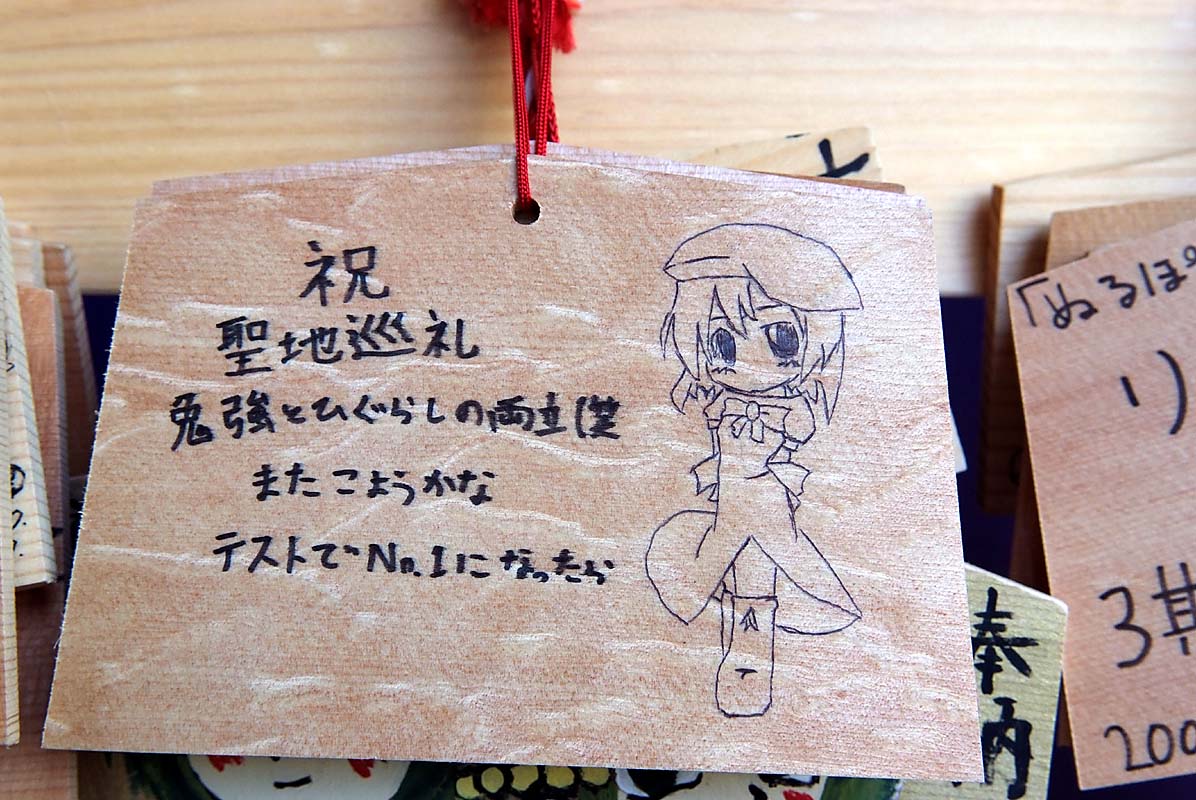 祝
聖地巡礼
勉強とひぐらしの両立僕
またこようかな
テストでNo.1になったら
「ぬるぽ
り
3期
200
奉
納